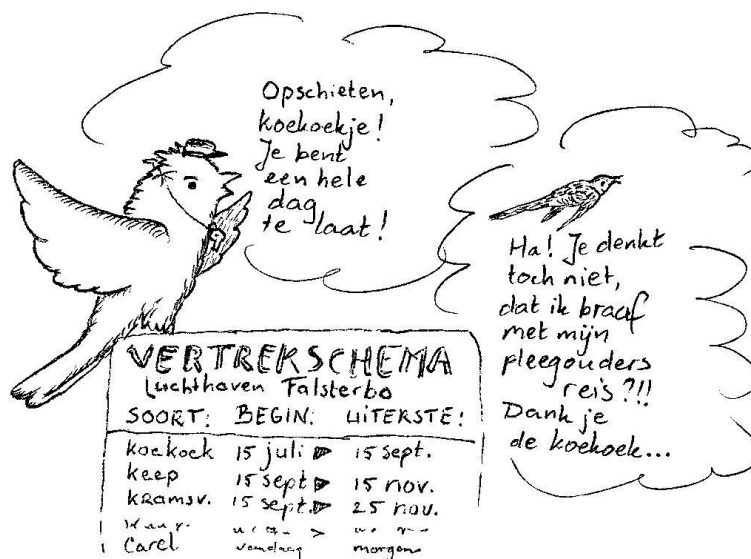 Opschieten,
koekoekje!
Je bent
een hele
dag
te laat!
Ha! Je denkt
toch niet,
dat ik braaf
met mijn
pleegouders
reis?!!
Dank je
de koekoek...
VERTREKSCHEMA
Luchthaven Falsterbo
SOORT: BEGIN: UITERSTE:
koekoek 15 juli ▶ 15 sept.
keep 15 sept ▶ 15 nov.
kramsv. 15 sept. ▶ 25 nov.
Carel vandaag morgen